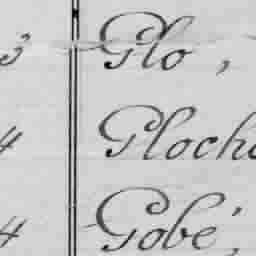 3 Glo,
4 Gloch
4 Gobé,